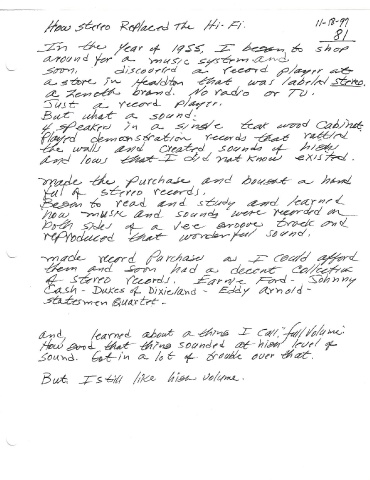 How Stereo Replaced The Hi-Fi.
11-18-97
81
In the year of 1955, I began to shop
around for a music system and
soon, discovered a record player at
a store in Healdton that was labeled Stereo.
a Zeneth brand. No radio or TV.
Just a record player.
But what a sound:
4 speakers in a single teak wood Cabinet.
Played demonstration records that rattled
the walls and created sounds of highs
and lows that I did not know existed.
made the purchase and bought a hand
ful of stereo records.
Began to read and study and learned
how music and sounds were recorded on
both sides of a vee groove track and
reproduced that wonderful sound.
made record Purchase as I could afford
them and soon had a decent Collection
of stereo records. Earnie Ford - Johnny
Cash - Dukes of Dixieland - Eddy Arnold -
statesmen Quartet -
and, learned about a thing I call: full Volume:
How good that thing sounded at high level of
sound. Got in a lot of trouble over that.
But I still like high volume.